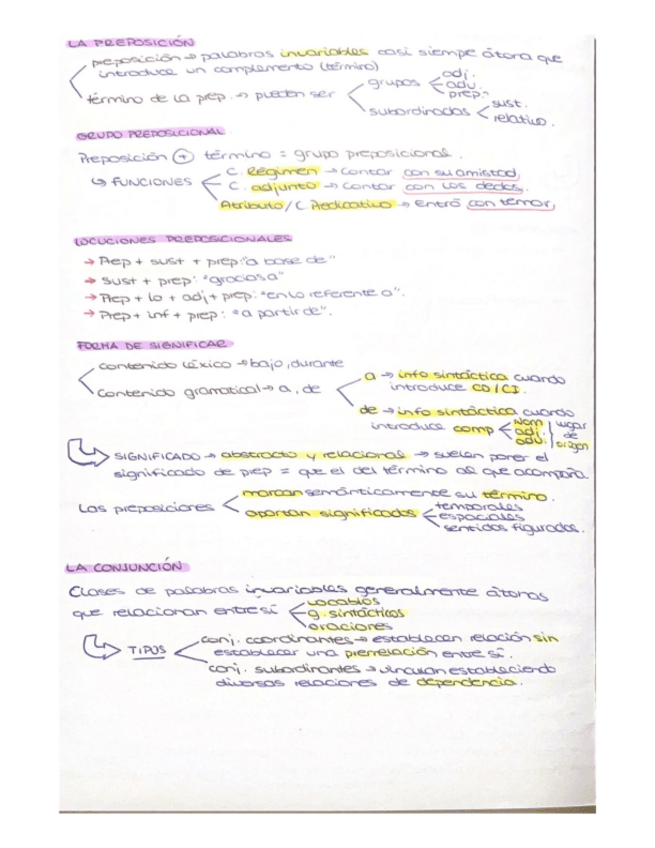 LA PREPOSICIÓN
preposición → palabras invariables casi siempre átona que
introduce un complemento (término)
término de la prep. → pueden ser
grupos
adj.
adv.
prep.
subordinadas
sust.
relativo.
GRUPO PREPOSICIONAL
Preposición + término = grupo preposicional.
↳ FUNCIONES
C. Régimen → Contar con su amistad
C. adjunto → Contar con los dedos.
Atributo / C Predicativo → Entró con temor
LOCUCIONES PREPOSICIONALES
→ Prep + sust + prep: "a base de"
→ sust + prep: "gracias a"
→ Prep + lo + adj + prep: "en lo referente a".
→ Prep + inf + prep: "a partir de".
FORMA DE SIGNIFICAR
contenido léxico → bajo, durante
contenido gramatical → a, de
a → info sintáctica cuando
introduce CD/CI.
de → info sintáctica cuando
introduce comp
Nom
adj.
adv.
lugar
de
origen
SIGNIFICADO → abstracto y relacional → suelen poner el
significado de prep = que el del término al que acompaña.
Las preposiciones
marcan semánticamente su término.
aportan significados
temporales
espaciales
sentidos figurados.
LA CONJUNCIÓN
Clases de palabras invariables generalmente átonas
que relacionan entre sí
vocablos
g. sintácticos
oraciones
TIPOS
conj. coordinantes → establecen relación sin
establecer una prerrelación entre sí.
conj. subordinantes → vinculan estableciendo
diversas relaciones de dependencia.